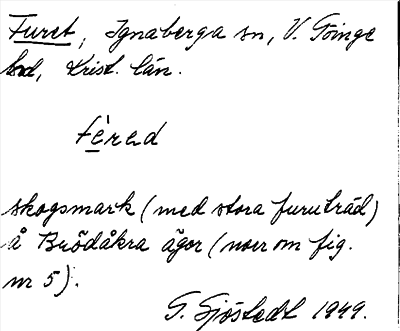 Furet, Ignaberga sn, V. Göinge
hd, Krist. län.
fèred
skogsmark (med stora furuträd)
å Brödåkra ägor (norr om fig.
nr 5).
G. Sjöstedt 1949.